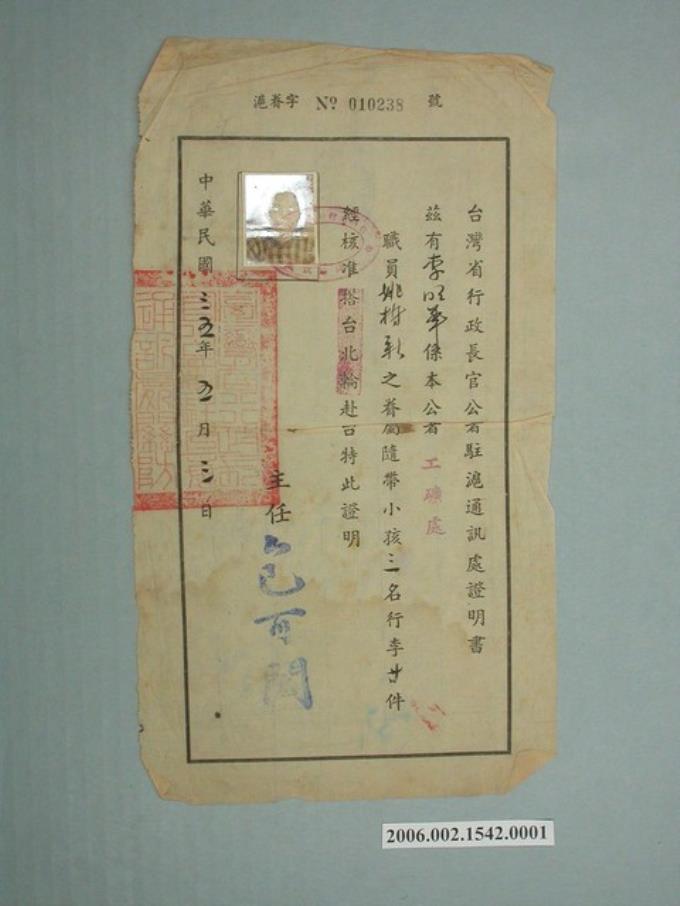 滬眷字 № 010238 號
台灣省行政長官公署駐滬通訊處證明書
茲有李明華係本公署工礦處
職員姚樹彰之眷屬隨帶小孩三名行李廿件
經核准搭台北輪赴台特此證明
主任包可閎
中華民國三五年五月三日
2006.002.1542.0001